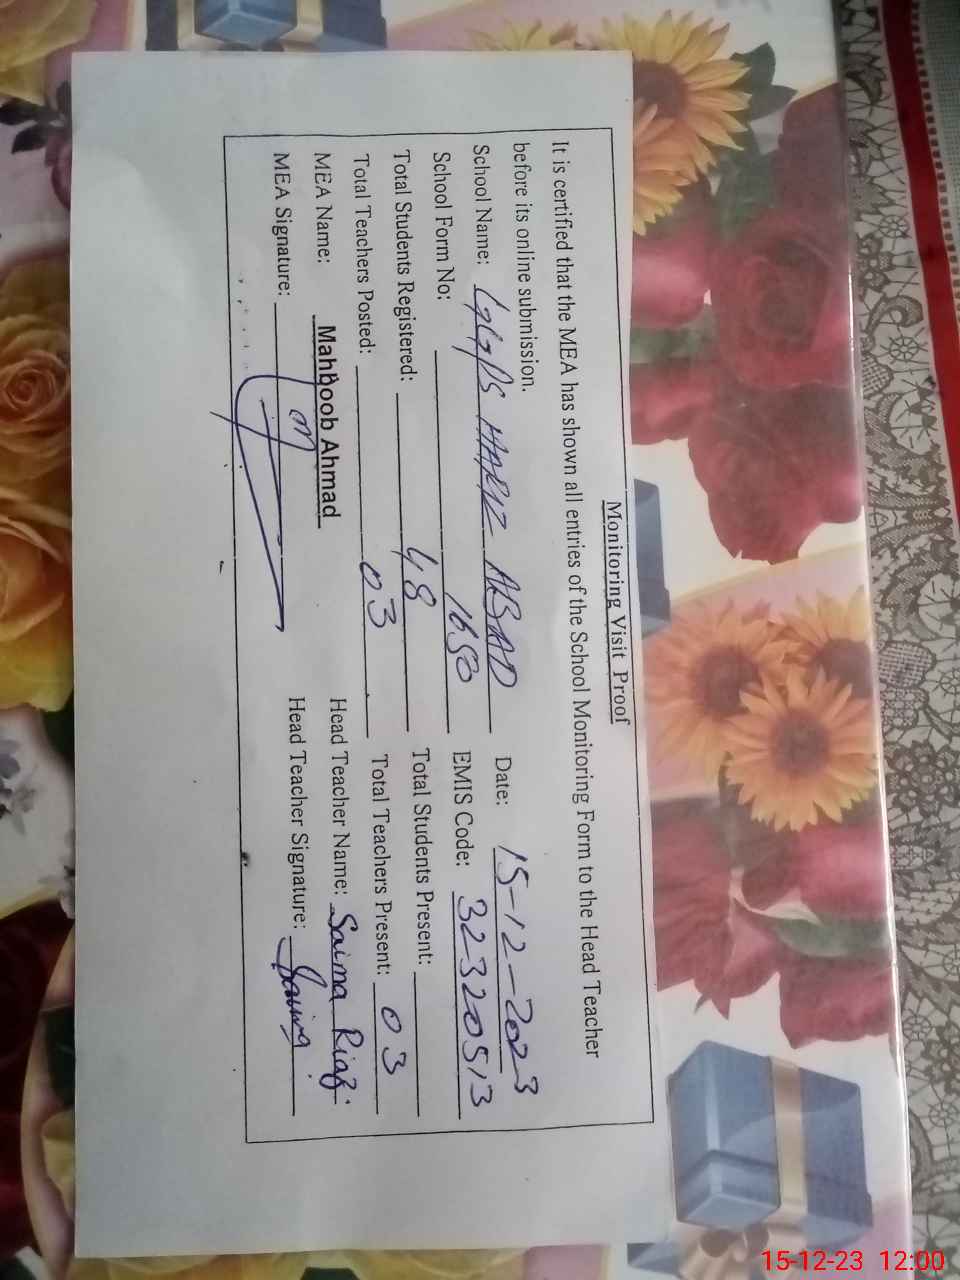 Monitoring Visit Proof
It is certified that the MEA has shown all entries of the School Monitoring Form to the Head Teacher
before its online submission.
School Name: GGPS HAFIZ ABAD Date: 15-12-2023
School Form No: 1650 EMIS Code: 32320513
Total Students Registered: 48 Total Students Present:
Total Teachers Posted: 03 Total Teachers Present: 03
MEA Name: Mahboob Ahmad Head Teacher Name: Saima Riaz.
MEA Signature: Head Teacher Signature: Saima
15-12-23 12:00